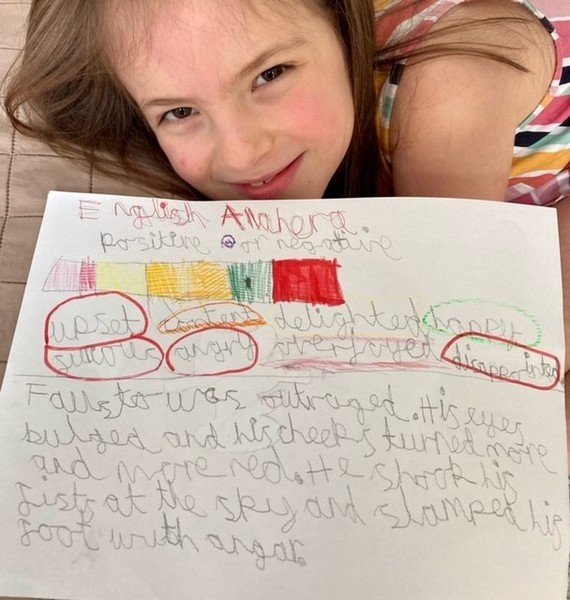 English Anahera
positive or negative
upset content delighted happy
furious angry overjoyed disappointed
Fausto was outraged. His eyes
bulged and his cheeks turned more
and more red. He shook his
fists at the sky and stamped his
foot with angar.